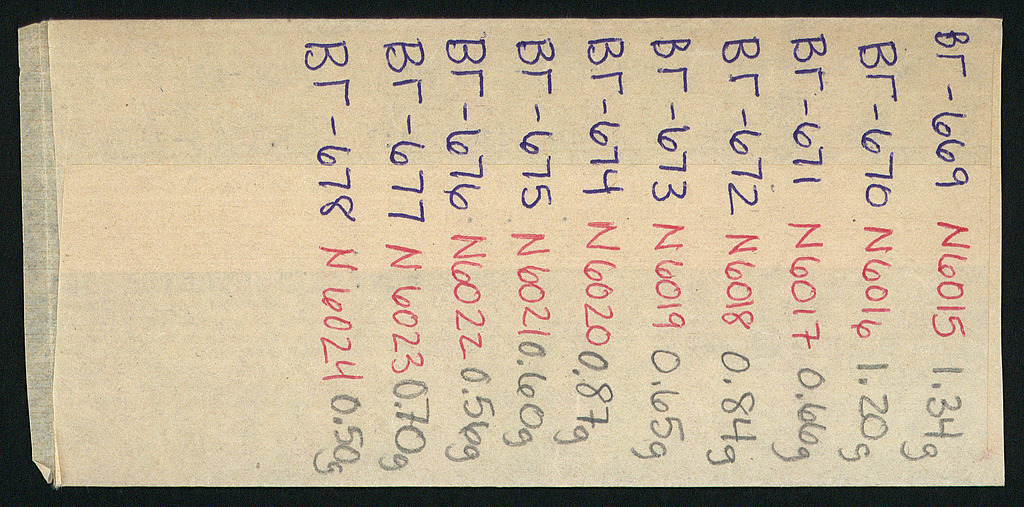 ВГ-669 N6015 1.34g
ВГ-670 N6016 1.20g
ВГ-671 N6017 0.66g
ВГ-672 N6018 0.84g
ВГ-673 N6019 0.65g
ВГ-674 N6020 0.87g
ВГ-675 N6021 0.60g
ВГ-676 N6022 0.56g
ВГ-677 N6023 0.70g
ВГ-678 N6024 0.50g